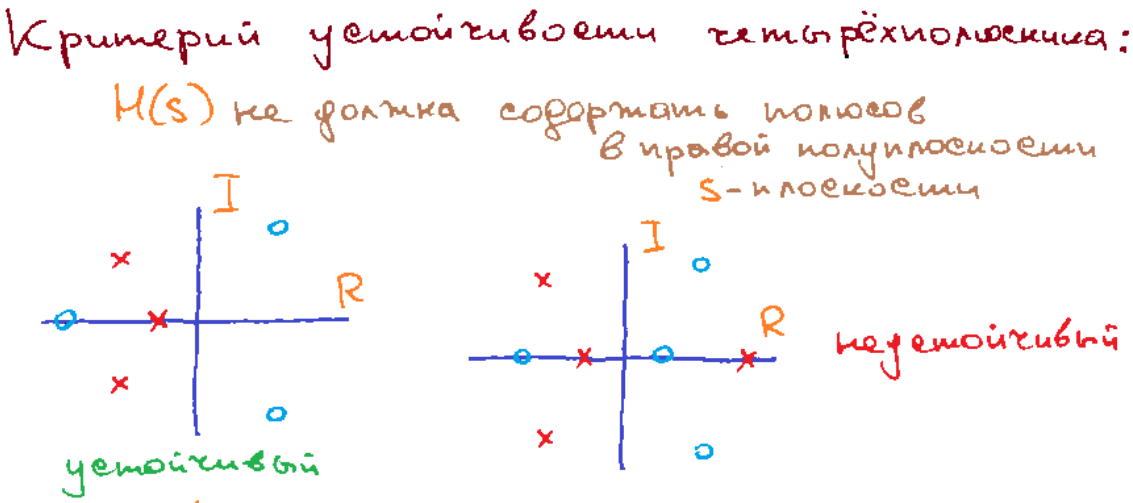 Критерий устойчивости четырёхполюсника:
H(s) не должна содержать полюсов
в правой полуплоскости
s-плоскости
I
R
устойчивый
I
R
неустойчивый